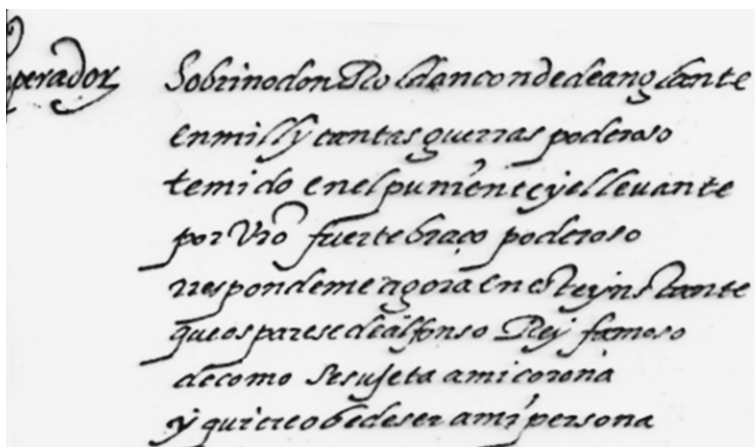 perador Sobrino don Roldan conde de anglante
en mill y tantas guerras poderoso
temido en el puniente y el levante
por Vro fuerte braço poderoso
rrespondeme agora en este ynstante
que os parese de alfonso Rey famoso
de como se sujeta a mi corona
y quiere obedeser a mi persona